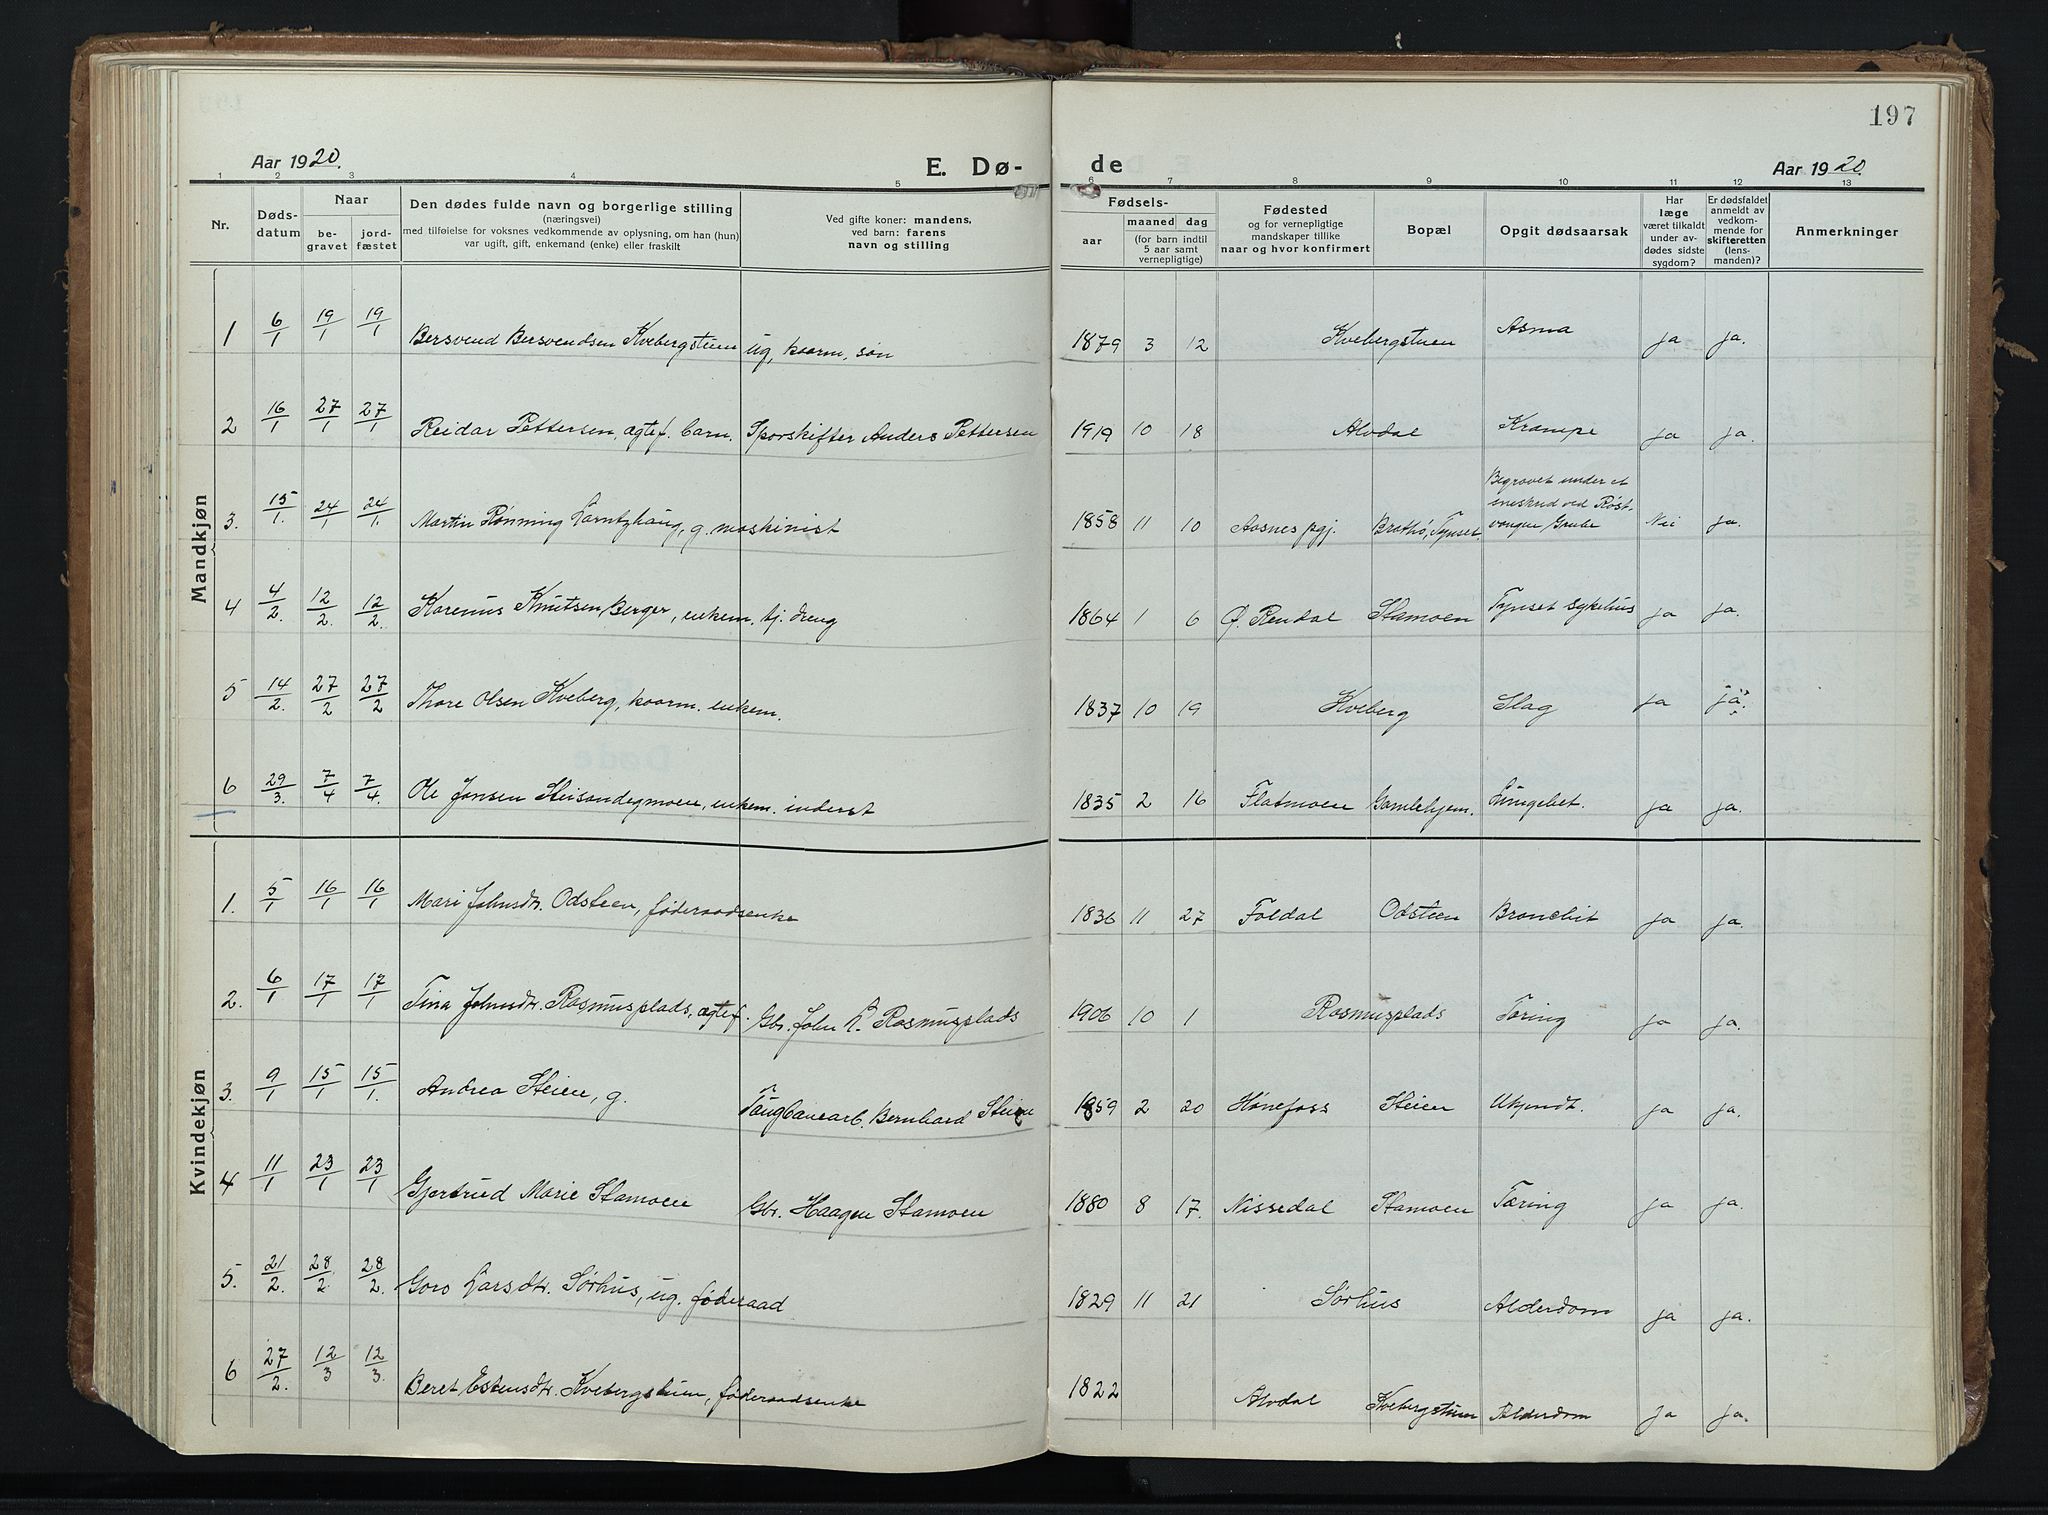 197
Aar 1920.
E. Dø-
de
Aar 1920
1 2 3 4 5 6 7 8 9 10 11 12 13
Nr.
Døds-
datum
Naar
be-
gravet
jord-
fæstet
Den dødes fulde navn og borgerlige stilling
(næringsvei)
med tilføielse for voksnes vedkommende av oplysning, om han (hun)
var ugift, gift, enkemand (enke) eller fraskilt
Ved gifte koner: mandens,
ved barn: farens
navn og stilling
Fødsels-
aar
maaned dag
(for barn indtil
5 aar samt
vernepligtige)
Fødested
og for vernepligtige
mandskaper tillike
naar og hvor konfirmert
Bopæl
Opgit dødsaarsak
Har
læge
været tilkaldt
under av-
dødes sidste
sygdom?
Er dødsfaldet
anmeldt av
vedkom-
mende for
skifteretten
(lens-
manden)?
Anmerkninger
Mandkjøn
1 6/1 19/1 19/1 Bersvend Bersvendsen Kvebergstuen ug, kaarm, søn 1879 3 12 Kvebergstuen Asma ja ja.
2 16/1 27/1 27/1 Reidar Pettersen, ægtef. barn. Sporskifter Anders Pettersen 1919 10 18 Alvdal Krampe ja ja.
3. 15/1. 24/1 24/1. Martin Rønning g. maskinist 1858 11 10 Aasnes pgj. Tynset. Begravet under et
sneskred ved Røst-
vangen Grube Nei ja.
4 4/2. 12/2. 12/2. Karenus Knutsen Berger, enkem. tj. dreng 1864 1 6 Ø. Rendal Stamoen Tynset sykehus ja ja.
5 14/2. 27/2 27/2 Thore Olsen Kveberg, kaarm. enkem. 1837 10 19 Kveberg Slag ja ja.
6 29/3. 7/4 7/4. Ole Jonsen Steisandegmoen, enkem. inderst 1835 2 16 Flatmoen Gamlehjem. Lungebet. ja ja.
Kvindekjøn
1. 5/1 16/1 16/1 Mari Johnsdtr. Odsteen, føderaadsenke 1836 11 27 Foldal Odsteen Broncbit ja ja.
2. 6/1 17/1 17/1 Tina Johnsdtr. Rasmusplads, ægtef. Gbr. John L. Rasmusplads 1906 10 1 Rasmusplads Tæring ja ja.
3. 9/1 15/1 15/1. Andrea Steien, g. Bernhard Steien 1859 2 20 Hønefoss Steien Ukjendt. ja ja.
4 11/1 23/1 23/1 Gjertrud Marie Stamoen Gbr. Haagen Stamoen 1880 8 17. Nissedal Stamoen Tæring ja ja.
5. 21/2. 28/2. 28/2. Goro Larsdtr. Sørhus, ug. føderaad 1829 11 21 Sørhus Alderdom ja ja.
6 27/2. 12/3 12/3. Beret Estensdtr. Kvebergstuen, føderaadsenke 1822 Alvdal Kvebergstuen Alderdom ja ja.